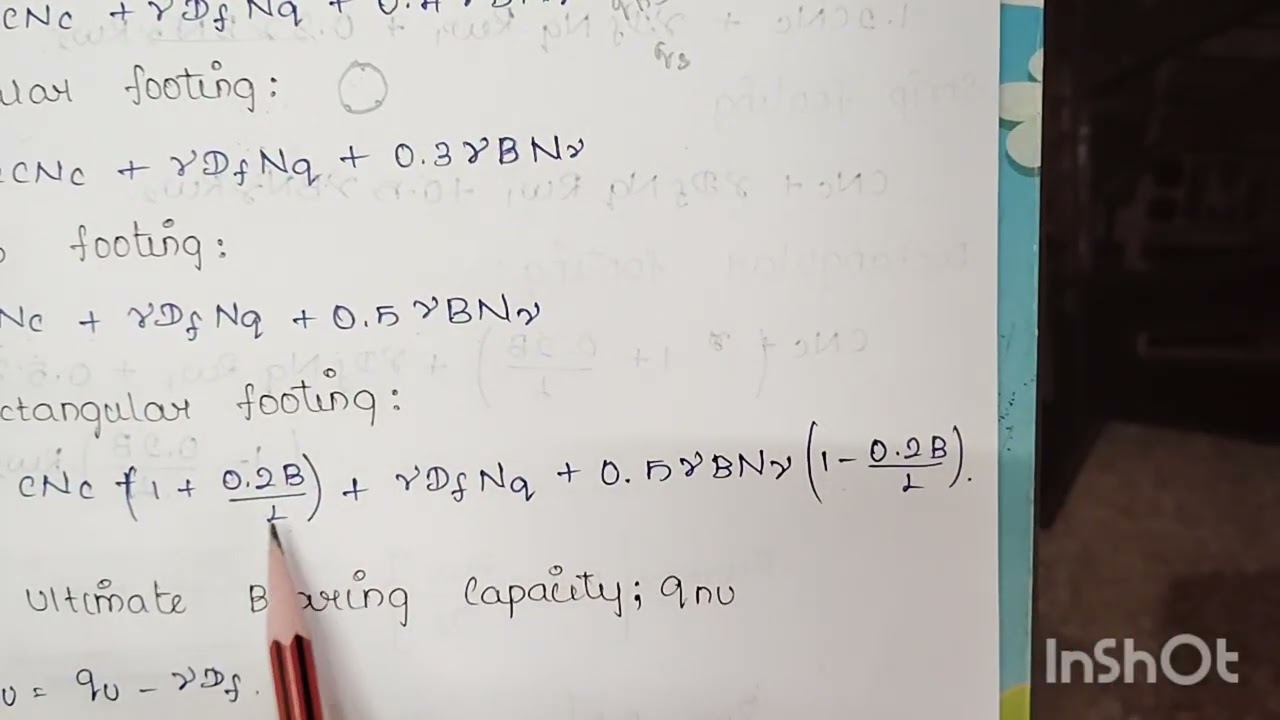 CNc + γDf Nq + 0.4
ular footing:
CNc + γDf Nq + 0.3 γBNγ
footing:
Nc + γDf Nq + 0.5 γBNγ
ctangular footing:
CNc (1 + 0.2B/L) + γDf Nq + 0.5 γBNγ (1 - 0.2B/L).
Ultimate B aring Capacity; qnu
u = qu - γDf.
InShOt